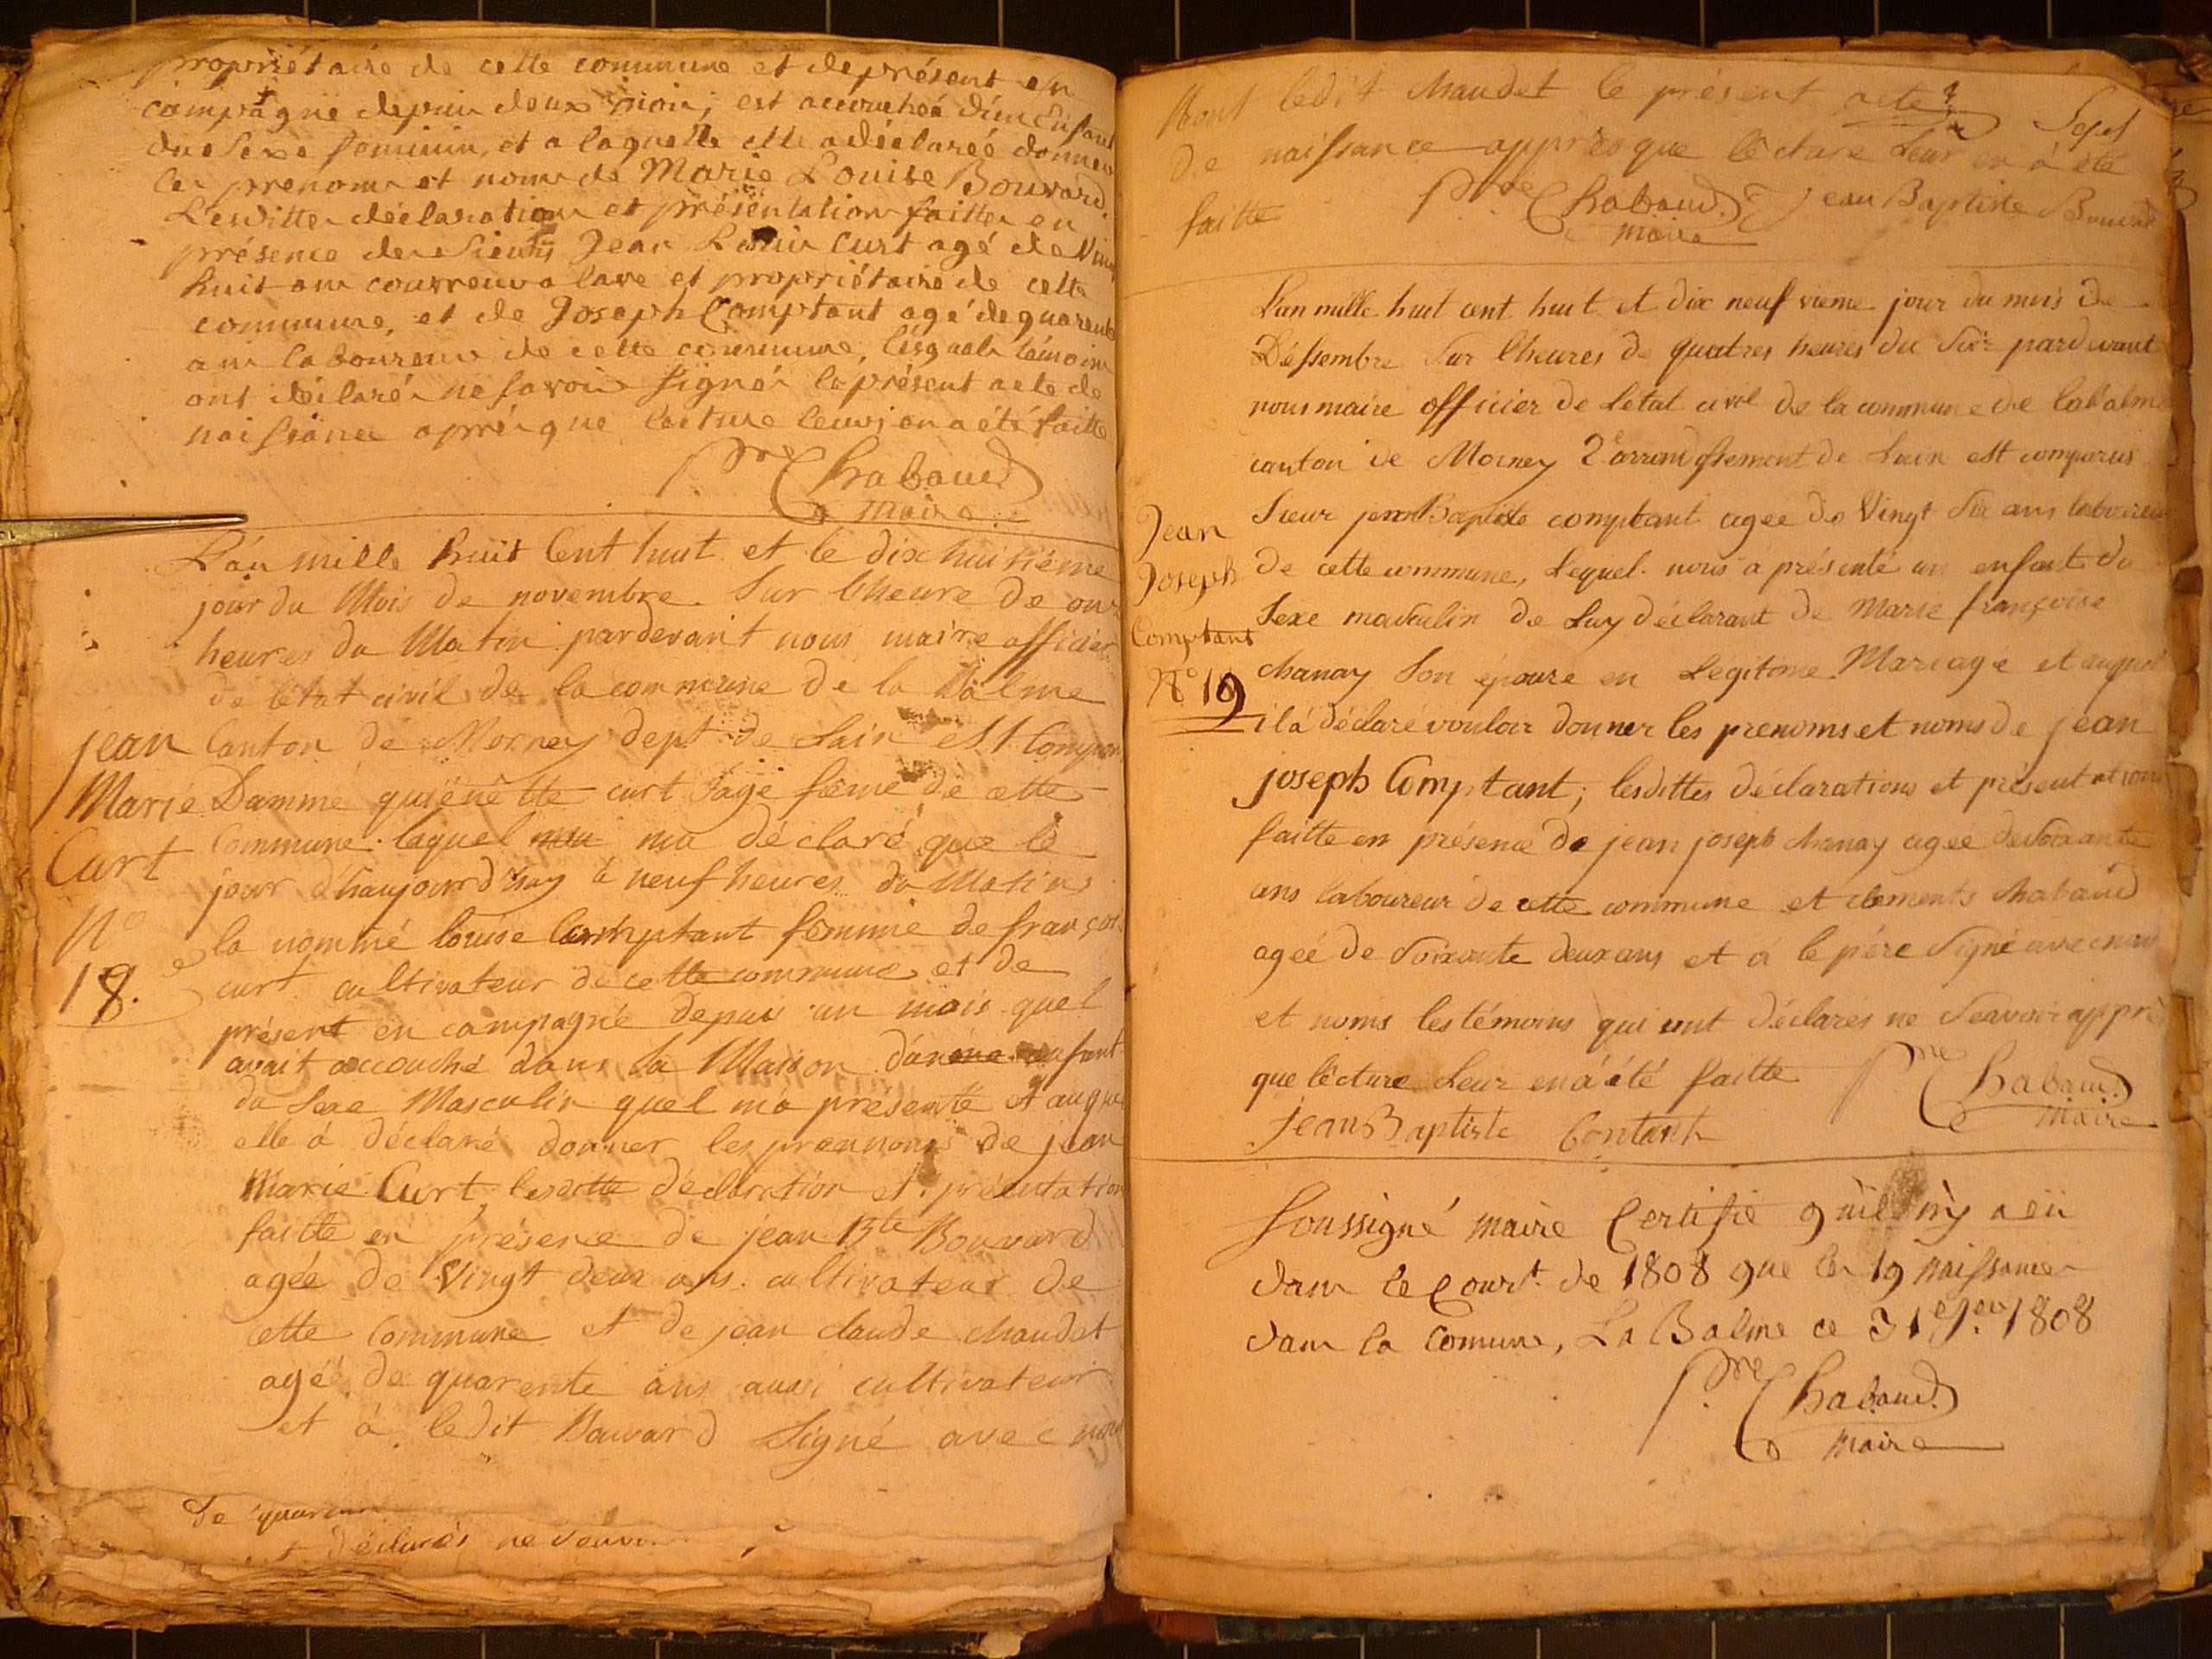 propriétaire de cette commune et de présent en
campagne depuis deux mois, est accouchée d'un Enfant
du Sexe feminin, et a laquelle elle a déclaréé donner
les prenoms et noms de Marie Louise Bouvard.
Lesditter déclaration et présentation faitter en
présence de Sieurs Jean Curt agé de Vingt
huit ans couvreur a lave et propriétaire de cette
commune, et de Joseph Comptant agé de quarente
ans laboureur de cette commune, lesquels témoins
ont déclaré ne savoir signér le présent acte de
naissance après que lecture leurs en a été faitte
Pre Chabaud
Maire
L'an mille huit Cent huit et le dix huitiéme
jour du Mois de novembre. Sur l'heure de onze
heures du Matin pardevant nous maire officier
de l'état civil de la commune de la Balme
Canton de Mornay dept de Lain est Comparu
Damme curt Sage féme de cette
Commune laquel ma déclaré que le
jour d'haujourd'huy à neuf heures du Matin
la nommé louise Comptant fémme de françois
curt cultivateur de cette commune et de
présent en campagne depuis un mois quel
avait accouché dans sa Maison d'un enfant
du Sexe Masculin quel ma présenté et auquel
elle à déclaré donner les prennoms de jean
Marie Curt, lesditte déclaration et présentation
faitte en présence de jean Bte Bouvard
agée de Vingt deux ans cultivateur de
cette Commune et de jean claude chaudet
agéé de quarente ans aussi cultivateur
et à ledit Bouvard Signé avec nous
jean
Marie
Curt
No
18.
de quaren
déclarés ne
ledit chaudet le présent acte
de naissance apprès que lécture Leur en à été
faitte
Pre Chabaud Jean Baptiste Bouvard
maire
L'an mille huit cent huit et dix neuf vieme jour du mois de
Déssembre Sur lheures de quatres heures du Soir pardevant
nous maire officier de Létat civil de la commune de labalme
canton de Mornay 2e arrondissement de Lain est comparus
Sieur jean Baptiste comptant agee de Vingt Six ans laboureur
de cette commune, Lequel nous à présenté un enfant du
Sexe masculin de Luy déclarant de Marie françoise
chanay Son épouse en Légitime Mariage et auquel
il à déclaré vouloir donner les prenoms et noms de jean
joseph Comptant; lesdittes déclarations et présentations
faitte en présence de jean joseph chanay agee de Soixante
ans laboureur de cette commune et clements chabaud
agéé de Soixante deux ans et à le pére Signé avec nous
et noms les témoins qui ont déclarés ne Seavoir apprès
que lécture Leur en à été faitte Pre Chabaud
Maire
jean Baptiste Contant
Jean
Joseph
Comptant
No 19
Soussigné maire Certifie quil n'y a eü
dans le Court. de 1808 que les 19 naissances
dans la Comune, La Balme ce 31 1808
Pre Chabaud
Maire